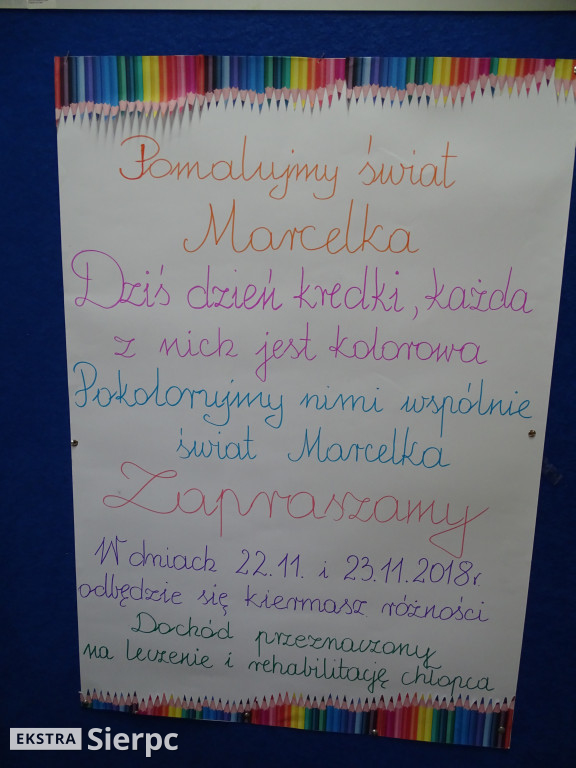 Pomalujmy świat
Marcelka
Dziś dzień kredki, każda
z nich jest kolorowa
Pokolorujmy nimi wspólnie
świat Marcelka
Zapraszamy
W dniach 22.11. i 23.11.2018r
odbędzie się kiermasz różności
Dochód przeznaczony
na leczenie i rehabilitację chłopca
EKSTRA Sierpc